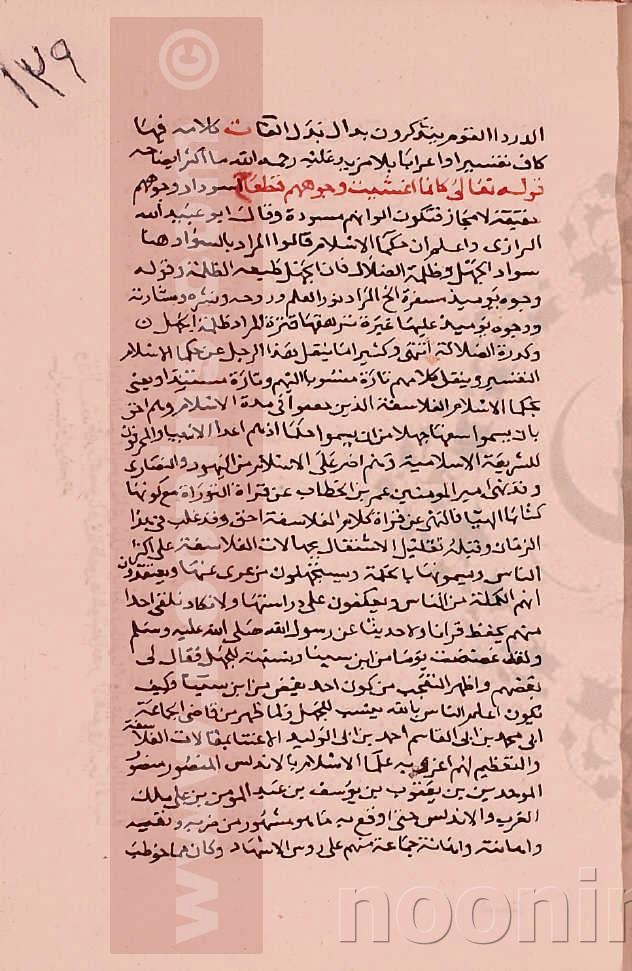 ١٣٩
القوم يتذاكرون بدال
كاف تفسيرا واعرابا بلا مزيد وعليه رحمه الله ما اكثر
قوله تعالى كانما اغشيت وجوههم قطعا اسوداد وجوههم
حقيقة لا مجاز فتكون الوانهم مسودة وقال ابو عبد الله
الرازى واعلم ان حكما الاسلام قالوا المراد بالسواد هنا
سواد الجهل وظلمة الضلال فان الجهل طبعه الظلمة وقوله
وجوه يوميذ مسفرة الخ المراد نور العلم وروحه وبشره وبشارته
ووجوه يوميذ عليها غبرة ترهقها قترة المراد ظلمة الجهل
وكدرة الضلالة انتهى وكثيرا ما ينقل هذا الرجل عن حكما الاسلام
التفسير وينقل كلامهم تارة منسوبا اليهم وتارة مستبدا ويعنى
بحكما الاسلام الفلاسفة الذين فى مدة الاسلام وهم احق
بان يسموا سفها جهلا من ان يسموا حكما اذ هم اعدا الانبيا
للشريعة الاسلامية وهم اضر على الاسلام من اليهود والنصارى
نهى امير المومنين عمر بن الخطاب عن قراة التوراة مع كونها
كتابا الهيا فالنهى عن قراة كلام الفلاسفة احق وقد غلب فى هذا
الزمان وقبله بقليل الاشتغال بجهالات الفلاسفة على اكثر
الناس ويسمونها بالحكمة ويستجهلون من عرى عنها ويعتقدون
انهم الكملة من الناس ويعكفون على دراستها ولا تكاد تلقى احدا
منهم يحفظ قرانا ولا حديثا عن رسول الله صلى الله عليه وسلم
ولقد يوما من ابن سينا ونسبته للجهل فقال لى
بعضهم واظهر التعجب من كون احد يغض من ابن سينا وكيف
يكون اعلم الناس بالله ينسب للجهل ولما ظهر من قاضى الجماعة
ابى محمد بن ابى القاسم احمد بن ابى الوليد الاعتنا بمقالات الفلاسفة
والتعظيم لهم اغرى به علما الاسلام بالاندلس المنصور منصور
الموحدين بن يعقوب بن يوسف بن عبد المومن بن على ملك
الغرب والاندلس حتى اوقع به ما هو مشهور من ضربه
واهانة جماعة منهم على روس الاشهاد وكان مما خوطب
©
noonin